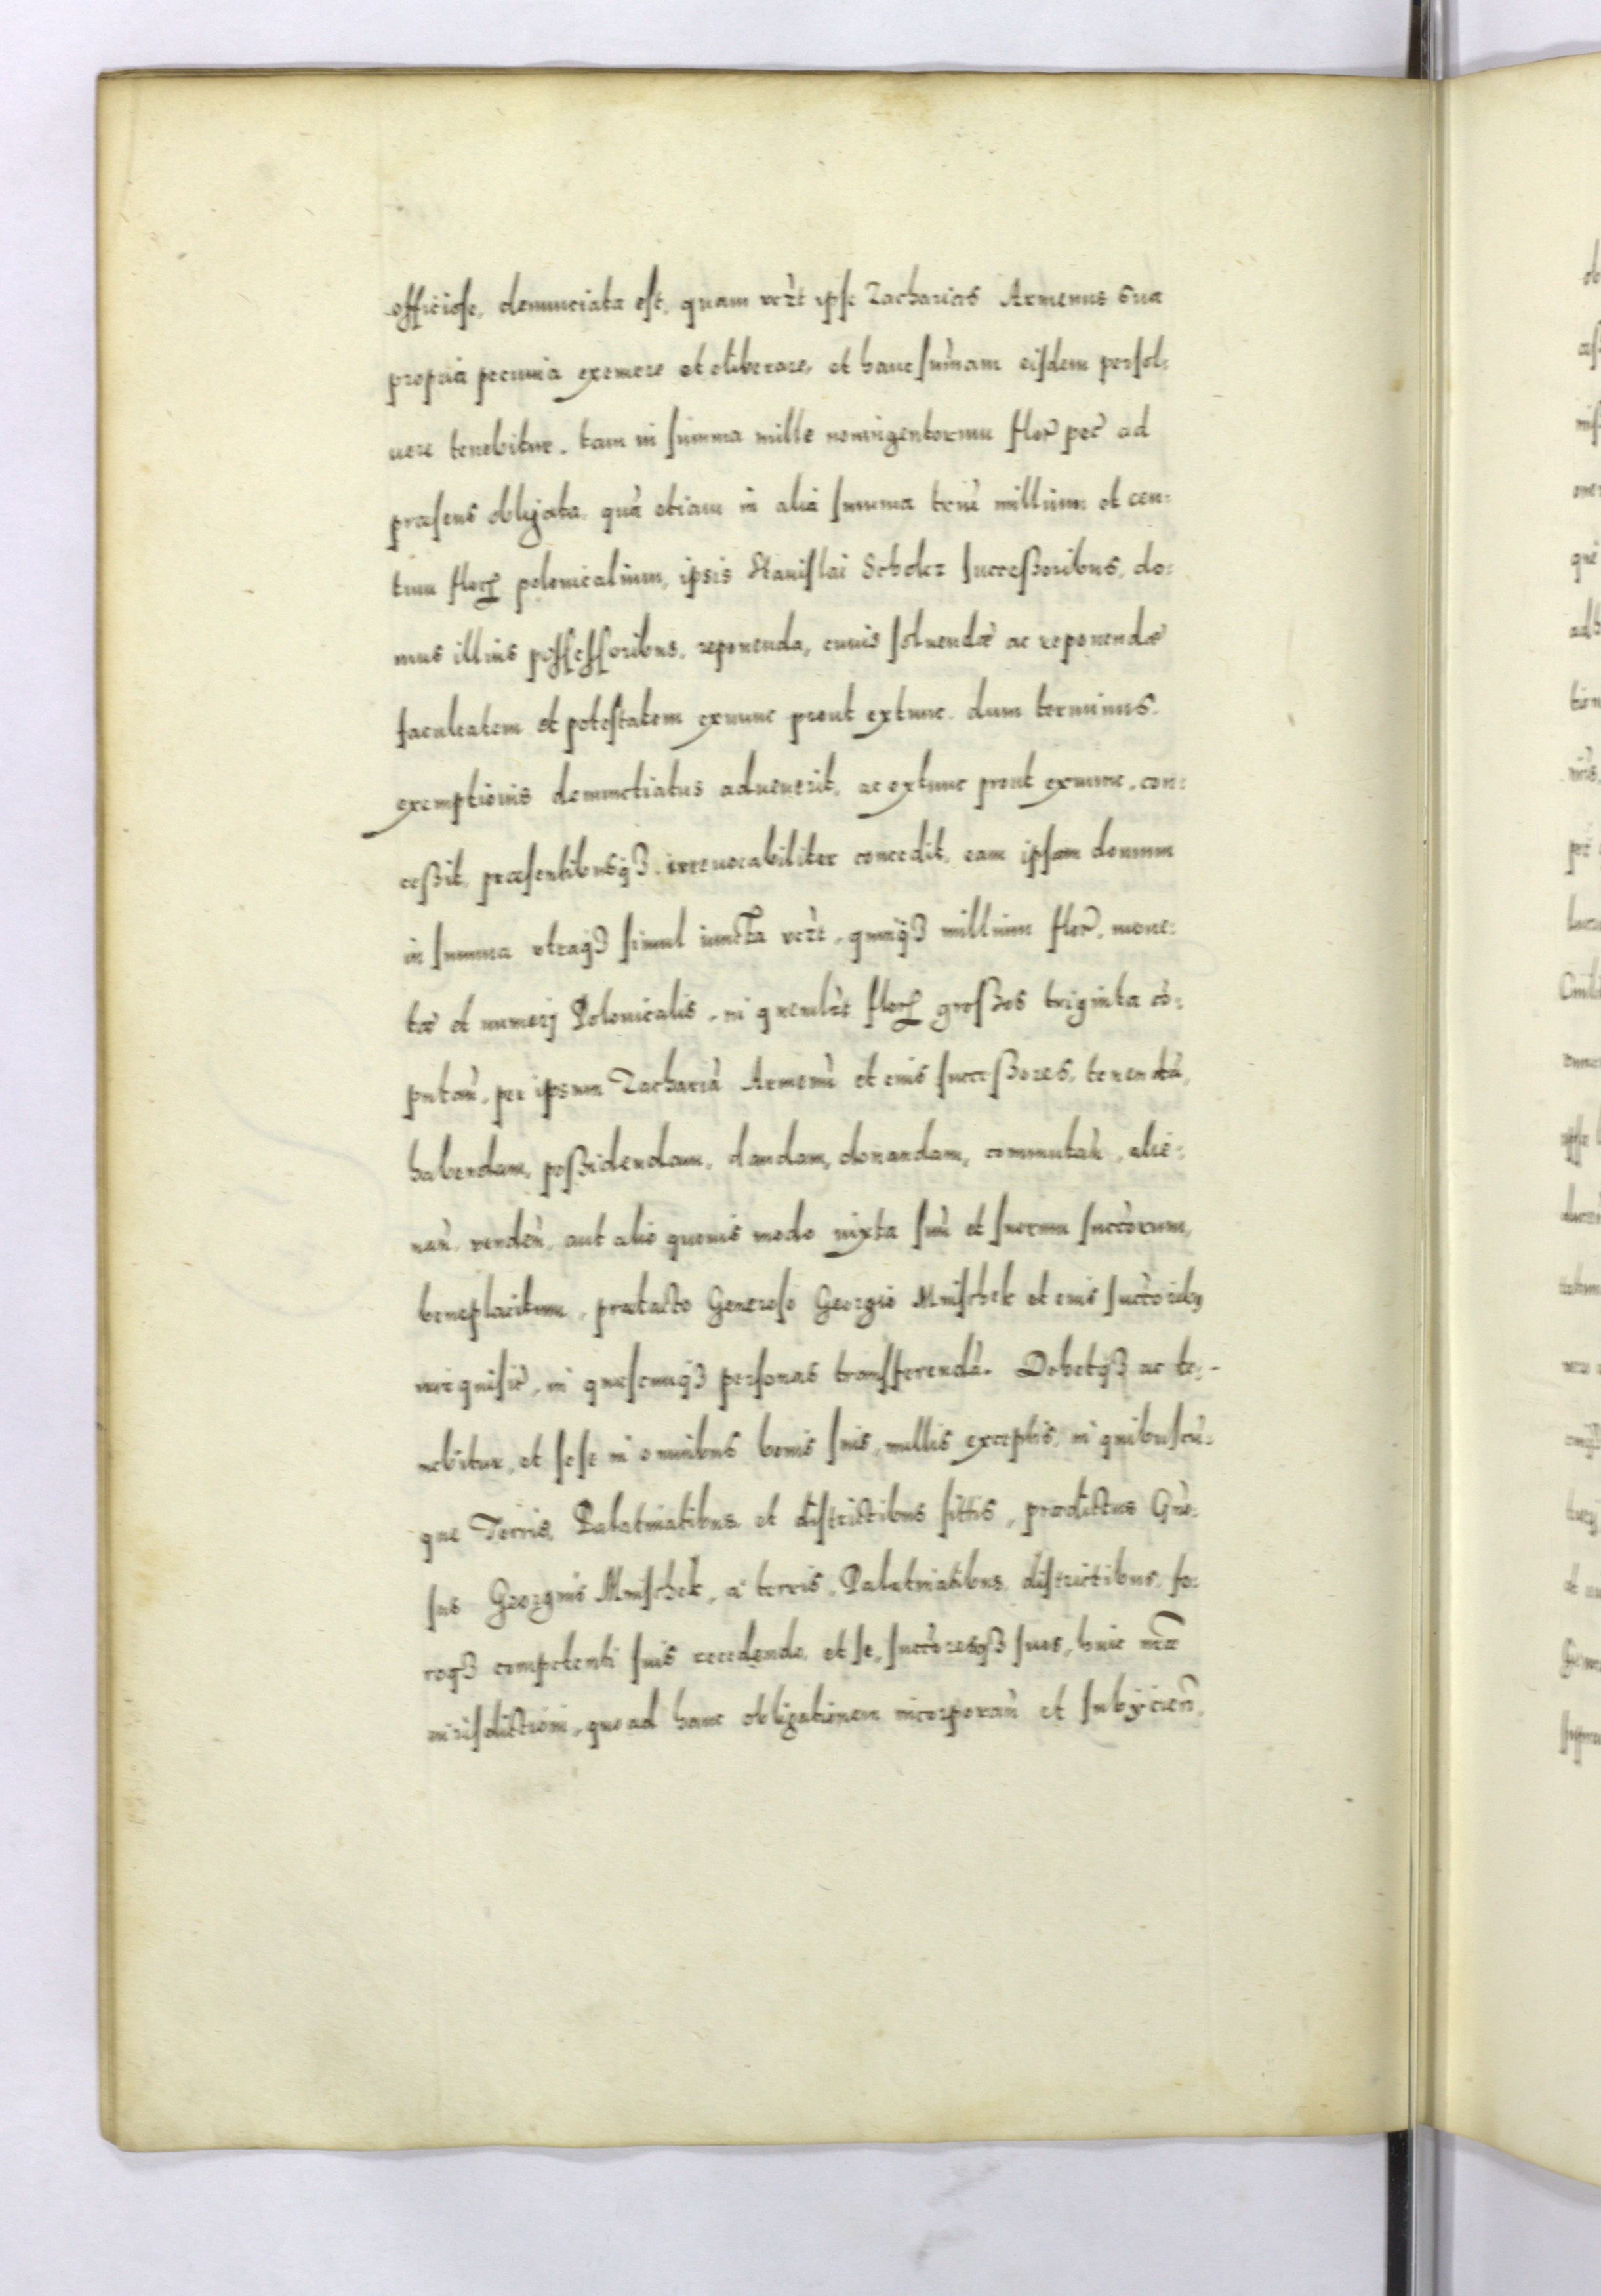 officiose, denunciata est, quam vert ipse Zacharias Armenus sua
propria pecunia exemere et eliberare, et hanc sum̃am eisdem persol:
uere tenebitur. tam in summa mille noningentorum flor̃ per ad
præsens obligata, quã etiam in alia summa triũ millium et cen:
tum flor polonicalium, ipsis Stanislai Scholcz successoribus, do:
mus illius possessoribus, reponenda, cuius soluendæ ac reponendæ
facultatem et potestatem exnunc prout extunc, dum terminus
exemptionis denunctiatus aduenerit, ac extunc prout exnunc, con:
cessit, præsentibusqȝ irreuocabiliter concedit, eam ipsam domum
in summa vtraqȝ simul iuncta vert, quinqȝ millium flor̃, mone:
tæ et numerj Polonicalis, in quemlet flor grossos triginta cõ:
putañ, per ipsum Zachariã Armenũ et eius successores, tenendã,
habendam, possidendam, dandam, donandam, commutañ, alie:
nañ, vendeñ, aut alio quouis modo iuxta suũ et suorum succorum,
beneplacitum, prætacto Generoso Georgio Mnischek et eius succorib9
irrequisit̃, in quascunqȝ personas transferendã. Debetqȝ ac te:
nebitur, et sese in omnibus bonis suis, nullis exceptis, in quibuscũ:
que Terris, Palatinatibus, et districtibus sittis, prædictus Gñe:
sus Georgius Mnischek, a terris, Palatinatibus, districtibus, fo:
roqȝ competenti suis recedendo, et se, succoresqȝ suos, huic nr̃æ
iurisdictioni, quo ad hanc obligationem incorporañ et subijcieñ,